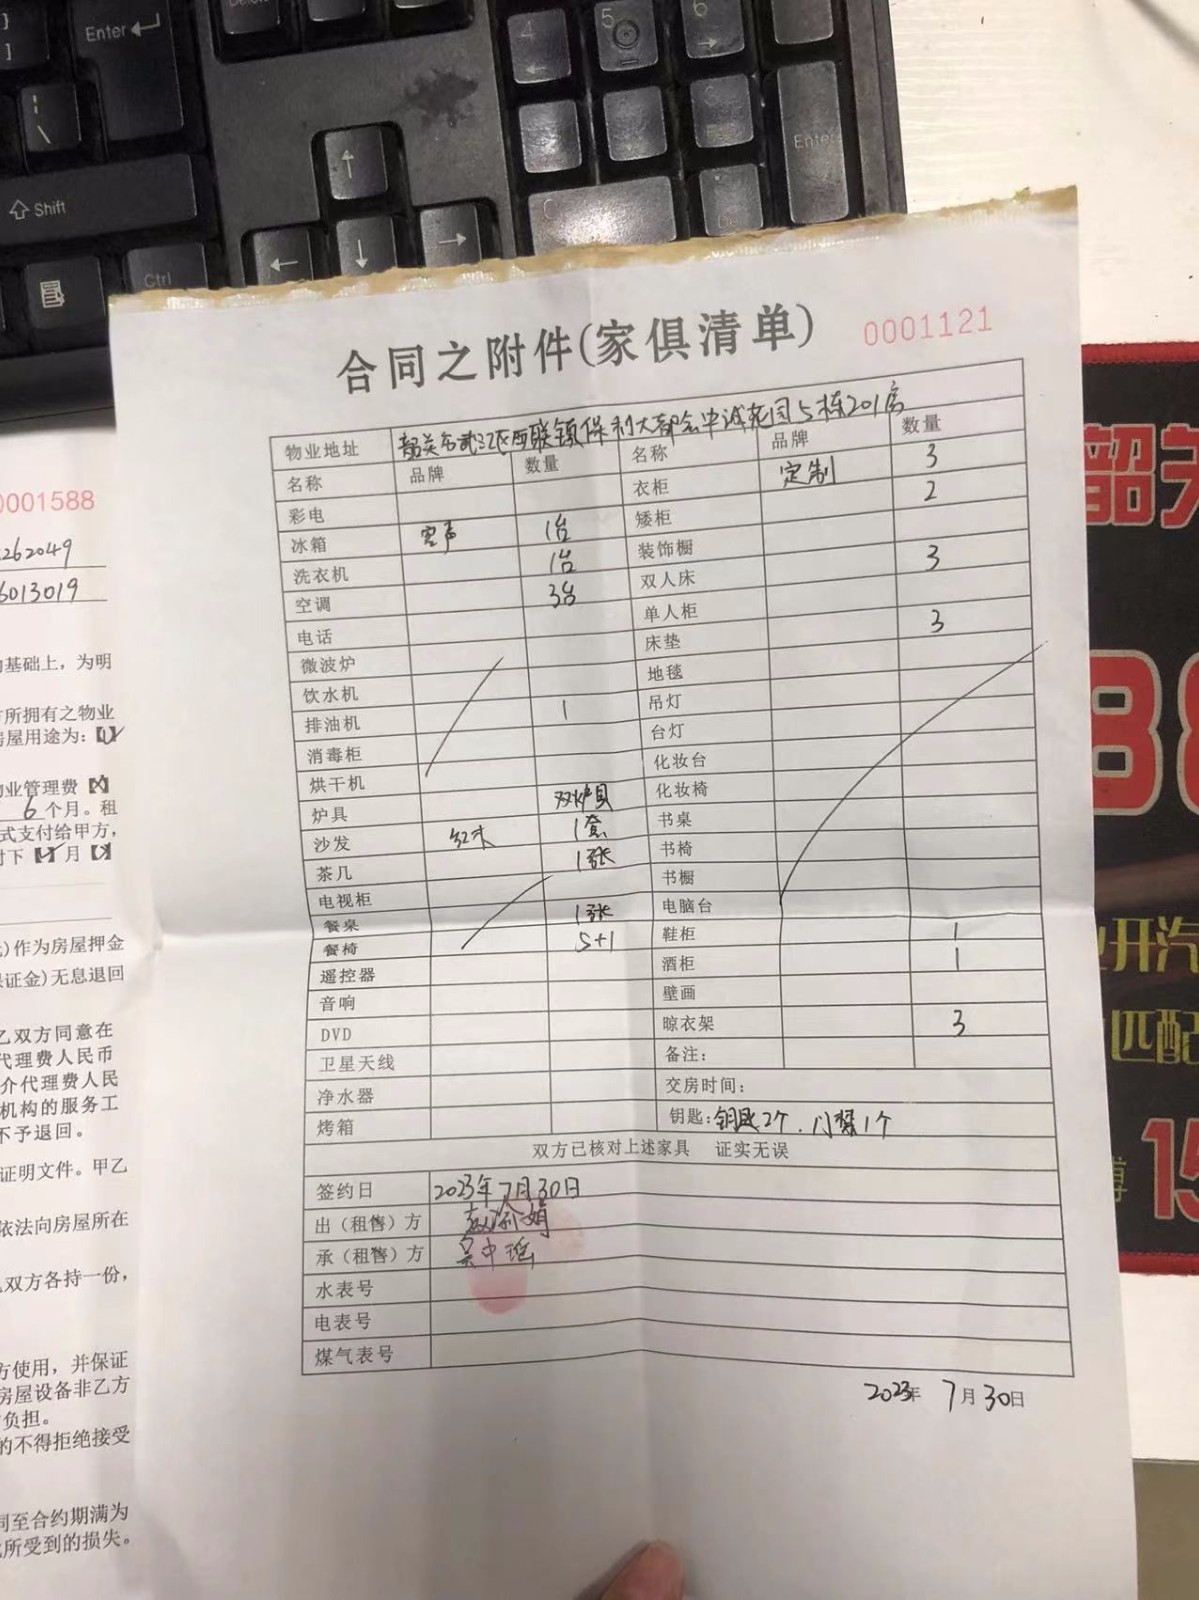 Enter
Shift
Ctrl
4
5
6
Enter
合同之附件(家俱清单)
0001121
物业地址 韶关市武江区西联镇保利大都会中诚花园5栋201房
名称 品牌 数量 名称 品牌 数量
彩电 衣柜 定制 3
冰箱 容声 1台 矮柜 2
洗衣机 1台 装饰橱
空调 3台 双人床 3
电话 单人柜
微波炉 床垫 3
饮水机 地毯
排油机 1 吊灯
消毒柜 台灯
烘干机 化妆台
炉具 双炉具 化妆椅
沙发 红木 1套 书桌
茶几 1张 书椅
电视柜 书橱
餐桌 1张 电脑台
餐椅 5+1 鞋柜 1
遥控器 酒柜 1
音响 壁画
DVD 晾衣架 3
卫星天线 备注:
净水器 交房时间:
烤箱 钥匙:钥匙2个.门禁1个
双方已核对上述家具 证实无误
签约日 2023年7月30日
出（租售）方
承（租售）方 吴中瑶
水表号
电表号
煤气表号
2023年 7月30日
0001588
262049
6013019
的基础上，为明
方所拥有之物业
房屋用途为:【
物业管理费
6个月。租
式支付给甲方，
付下 月
)作为房屋押金
保证金)无息退回
乙双方同意在
代理费人民币
介代理费人民
机构的服务工
不予退回。
证明文件。甲乙
依法向房屋所在
双方各持一份，
方使用，并保证
房屋设备非乙方
负担。
的不得拒绝接受
同至合约期满为
所受到的损失。
韶关
88
开汽
匹配
15